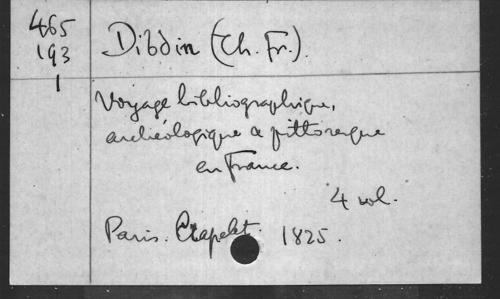 465
193
1
Dibdin (Ch. Fr.).
Voyage bibliographique,
archéologique & pittoresque
en France.
4 vol.
Paris. Crapelet. 1825.